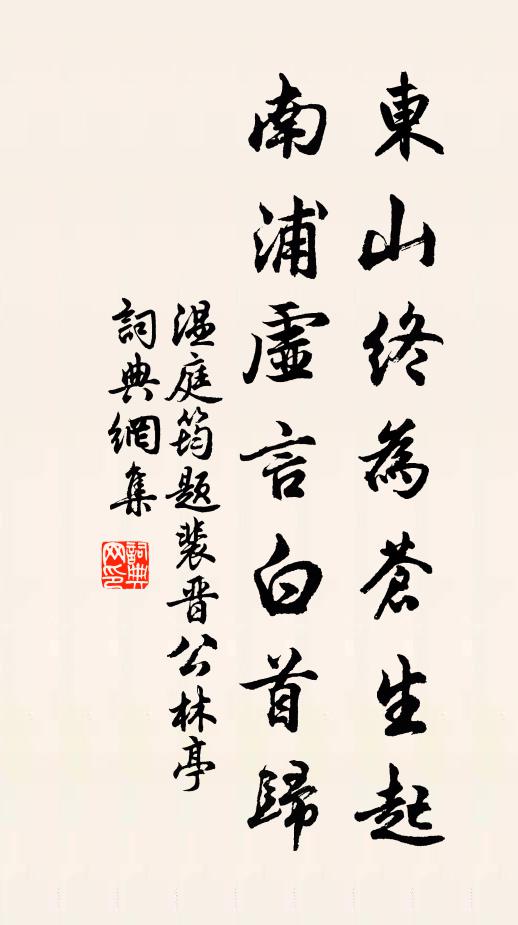 東山終為蒼生起
南浦虛言白首歸
温庭筠題裴晋公林亭
詞典網集
詞典網印